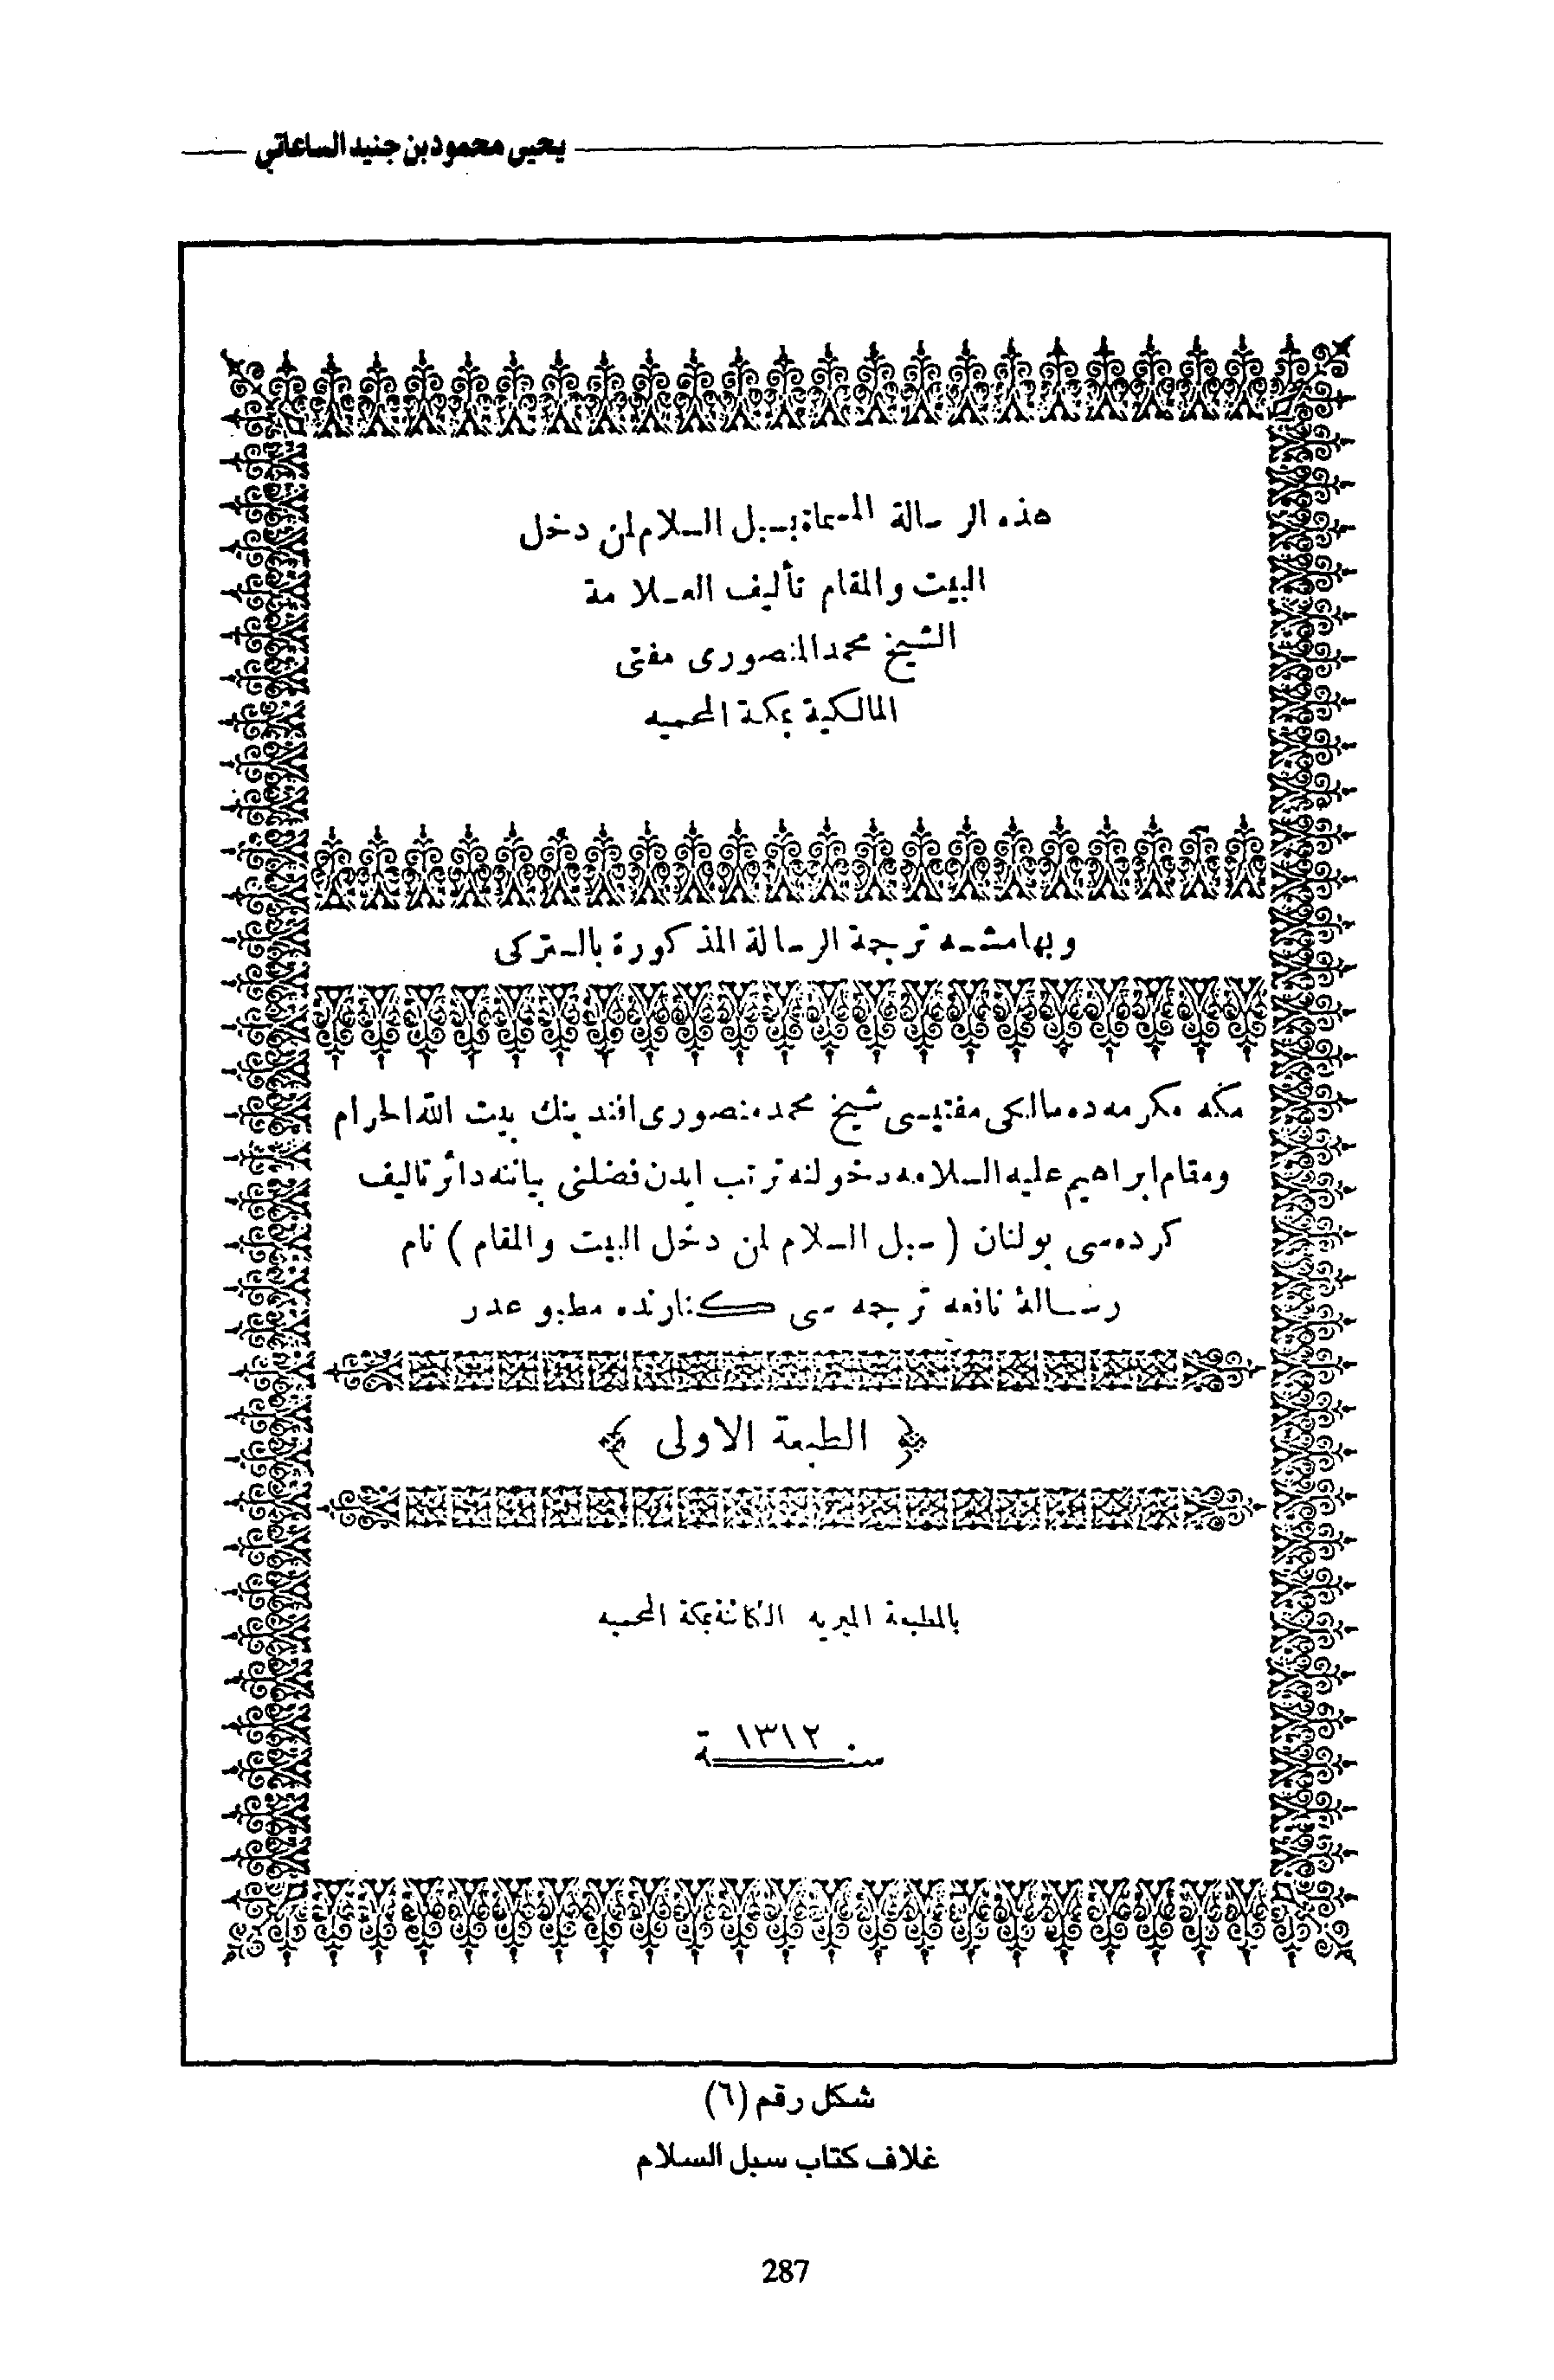 يحيى محمود بن جنيد الساعاتي
هذه الرسالة المسماة بسبل السلام لمن دخل
البيت والمقام تأليف العلامة
الشيخ محمد المنصورى مفتى
المالكية بمكة المحميه
وبهامشه ترجمة الرسالة المذكورة بالتركى
مكه مكرمه ده مالكى مفتيسى شيخ محمد منصورى افندينك بيت الله الحرام
ومقام ابراهيم عليه السلامه دخولنه ترتب ايدن فضلنى بياننه دائر تاليف
كرده سى بولنان ( سبل السلام لمن دخل البيت والمقام ) نام
رسالهٔ نافعه ترجمه سى كنارنده مطبوعدر
﴿ الطبعة الاولى ﴾
بالمطبعة الميريه الكائنة بمكة المحميه
سنة ١٣١٢
شكل رقم (٦)
غلاف كتاب سبل السلام
287